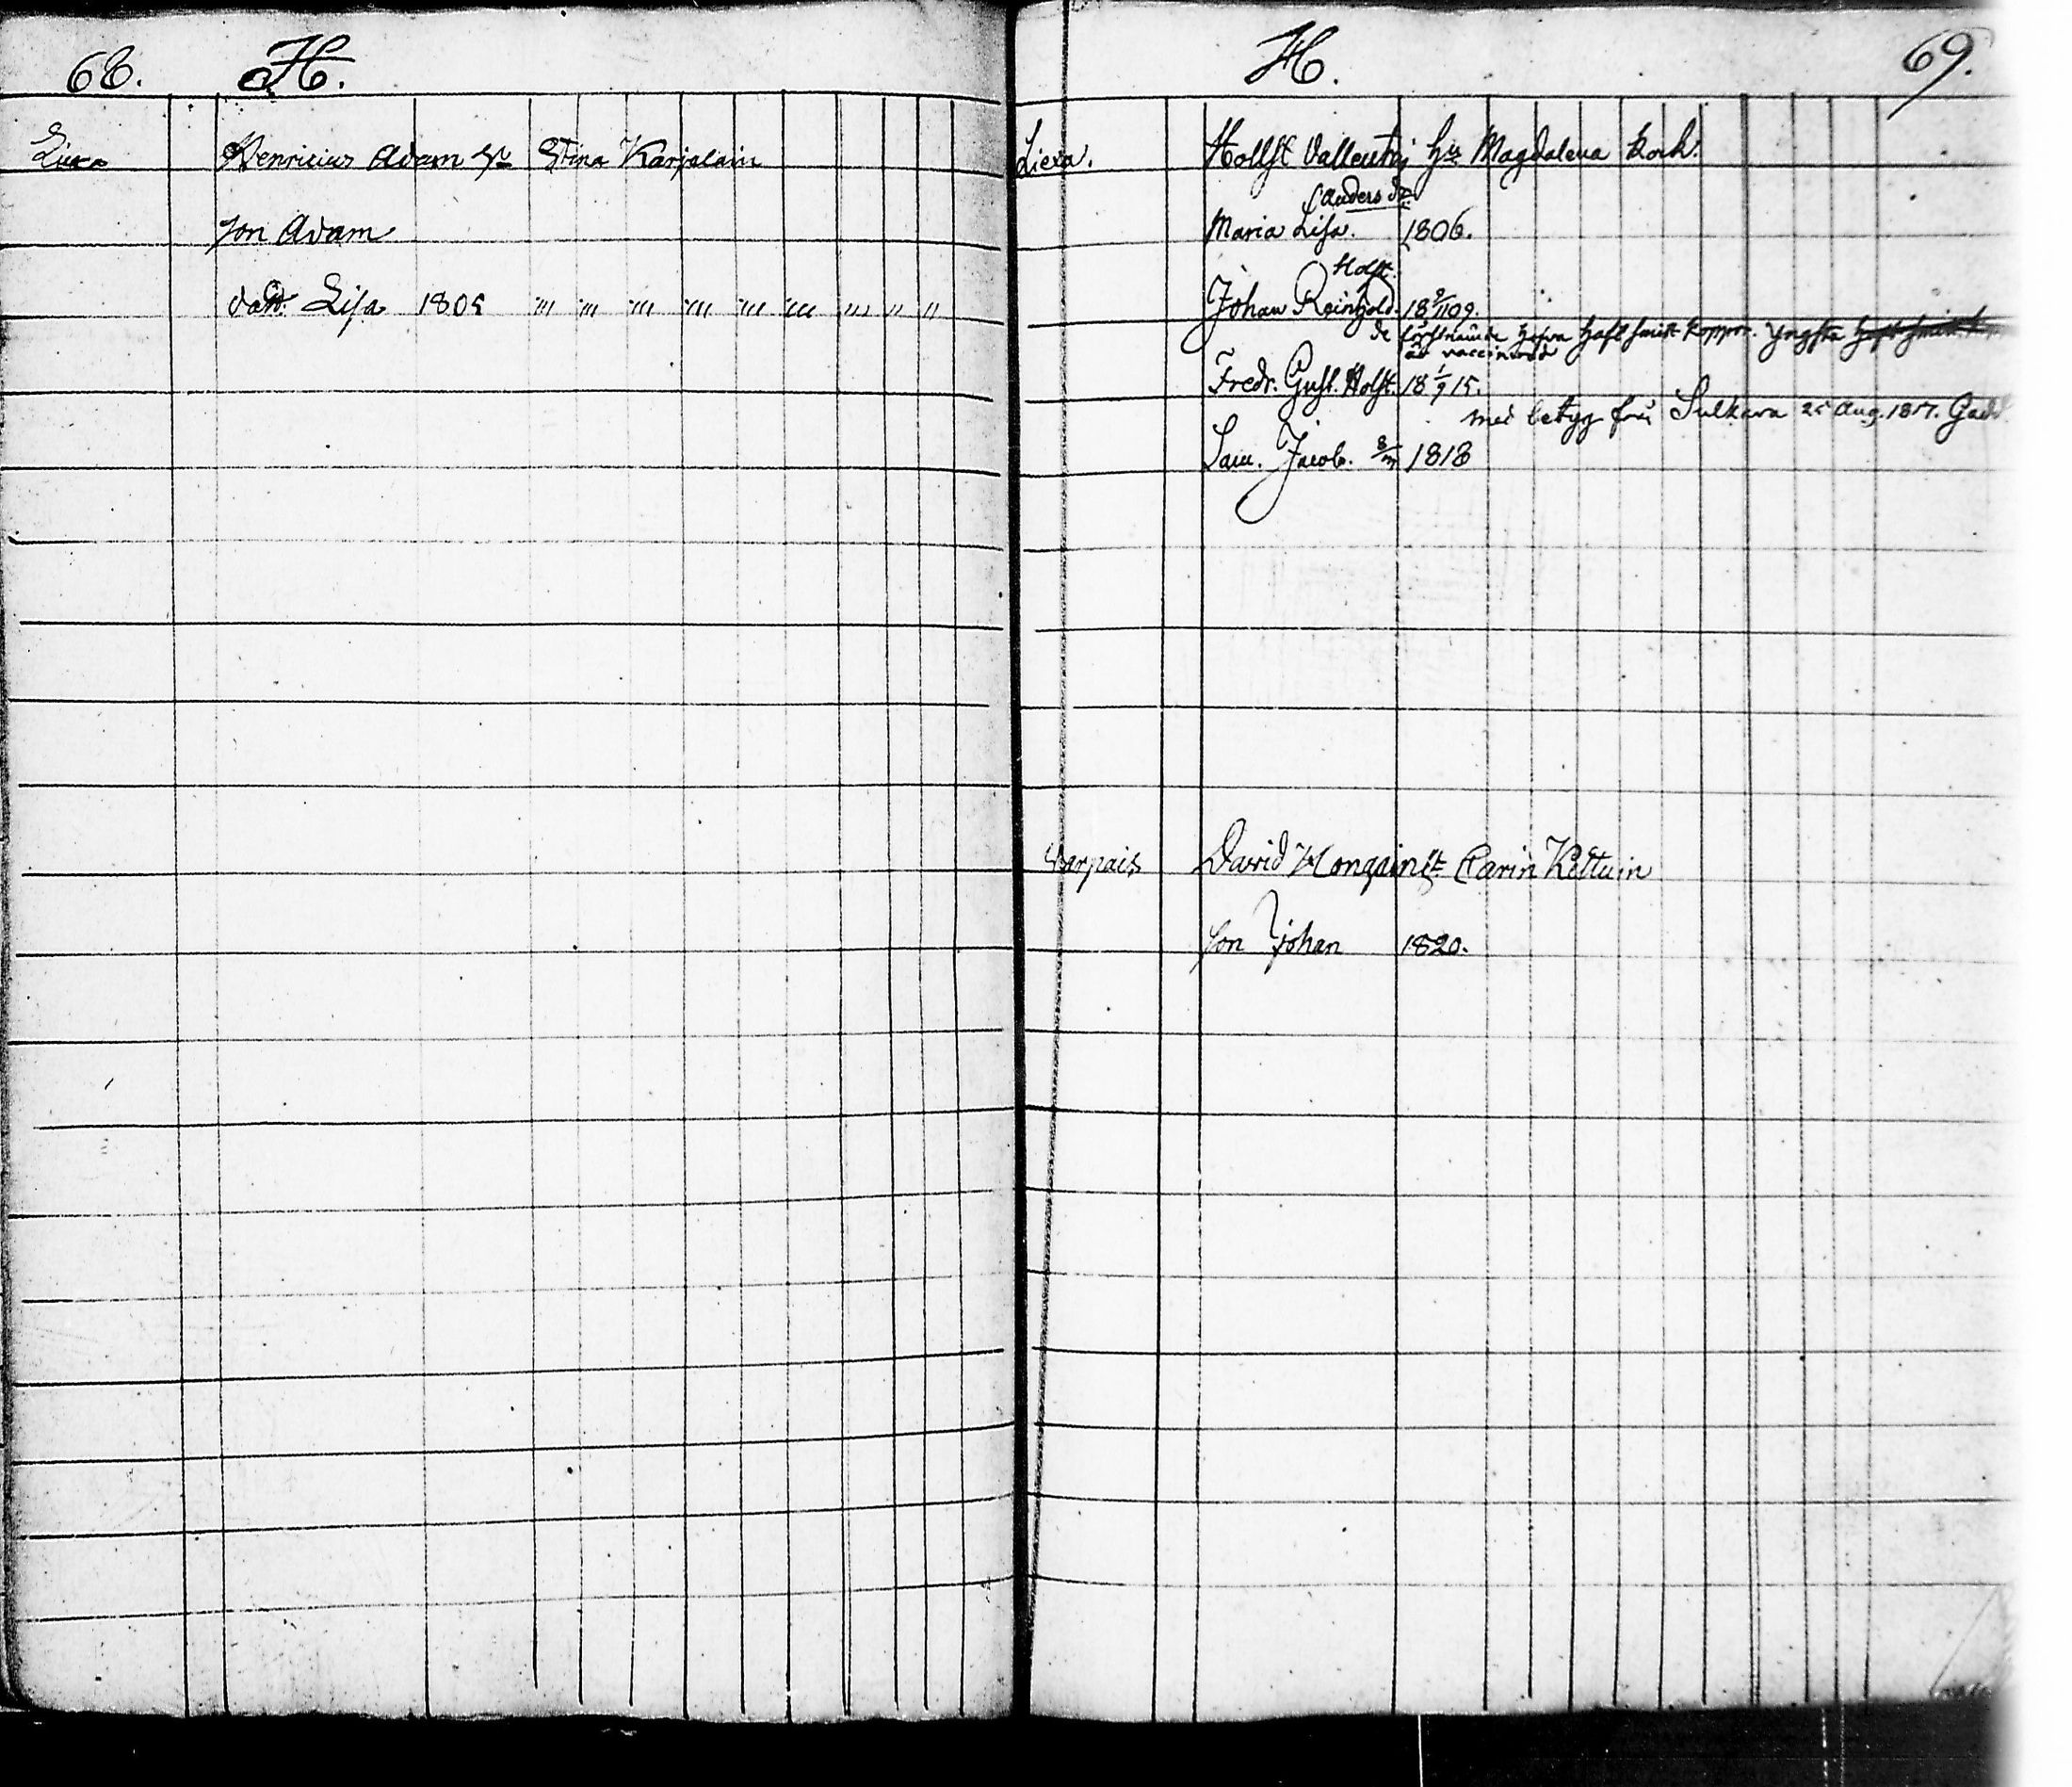 68. H.
Liexa Henricius Adam Hu Stina Karjalain
Son Adam
Dott. Lisa 1805 "' "' "" "" "' "' "' " "
H. 69.
Liexa. Hollst Vallentin Hu Magdalena Koch.
Anders dr
Maria Lisa. 1806.
Holst.
Johan Reinhold. 18 9/11 09.
de förstnämde hafva haft smitt koppor. yngsta haft smitt
är vaccinerad
Fredr. Gust. Holst. 18 1/9 15.
med betyg från Sulkava 25 Aug. 1817. Gadd
Sam. Jacob. 8/3 1818
Varpais David Hongain Carin Kettuin
Son Johan 1820.